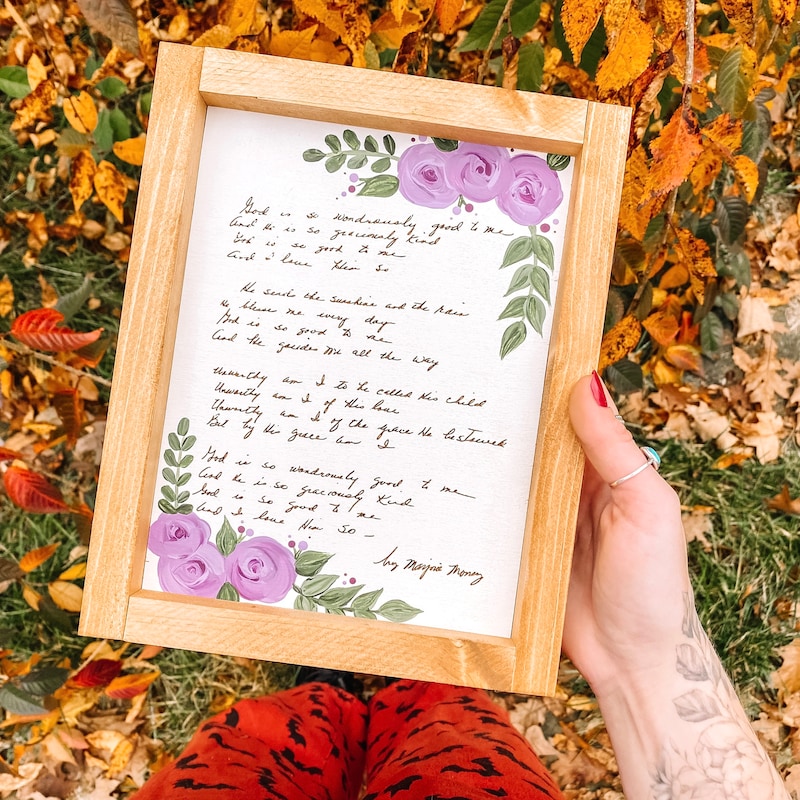 God is so wondrously good to me
And He is so graciously kind
God is so good to me
And I love Him so
He sent the sunshine and the rain
He bless me every day
God is so good to me
And He guides me all the way
Unworthy am I to be called His child
Unworthy am I of His love
Unworthy am I of the grace He bestowed
But by His grace am I
God is so wondrously good to me
And He is so graciously kind
God is so good to me
And I love Him so -
by Marjorie Money